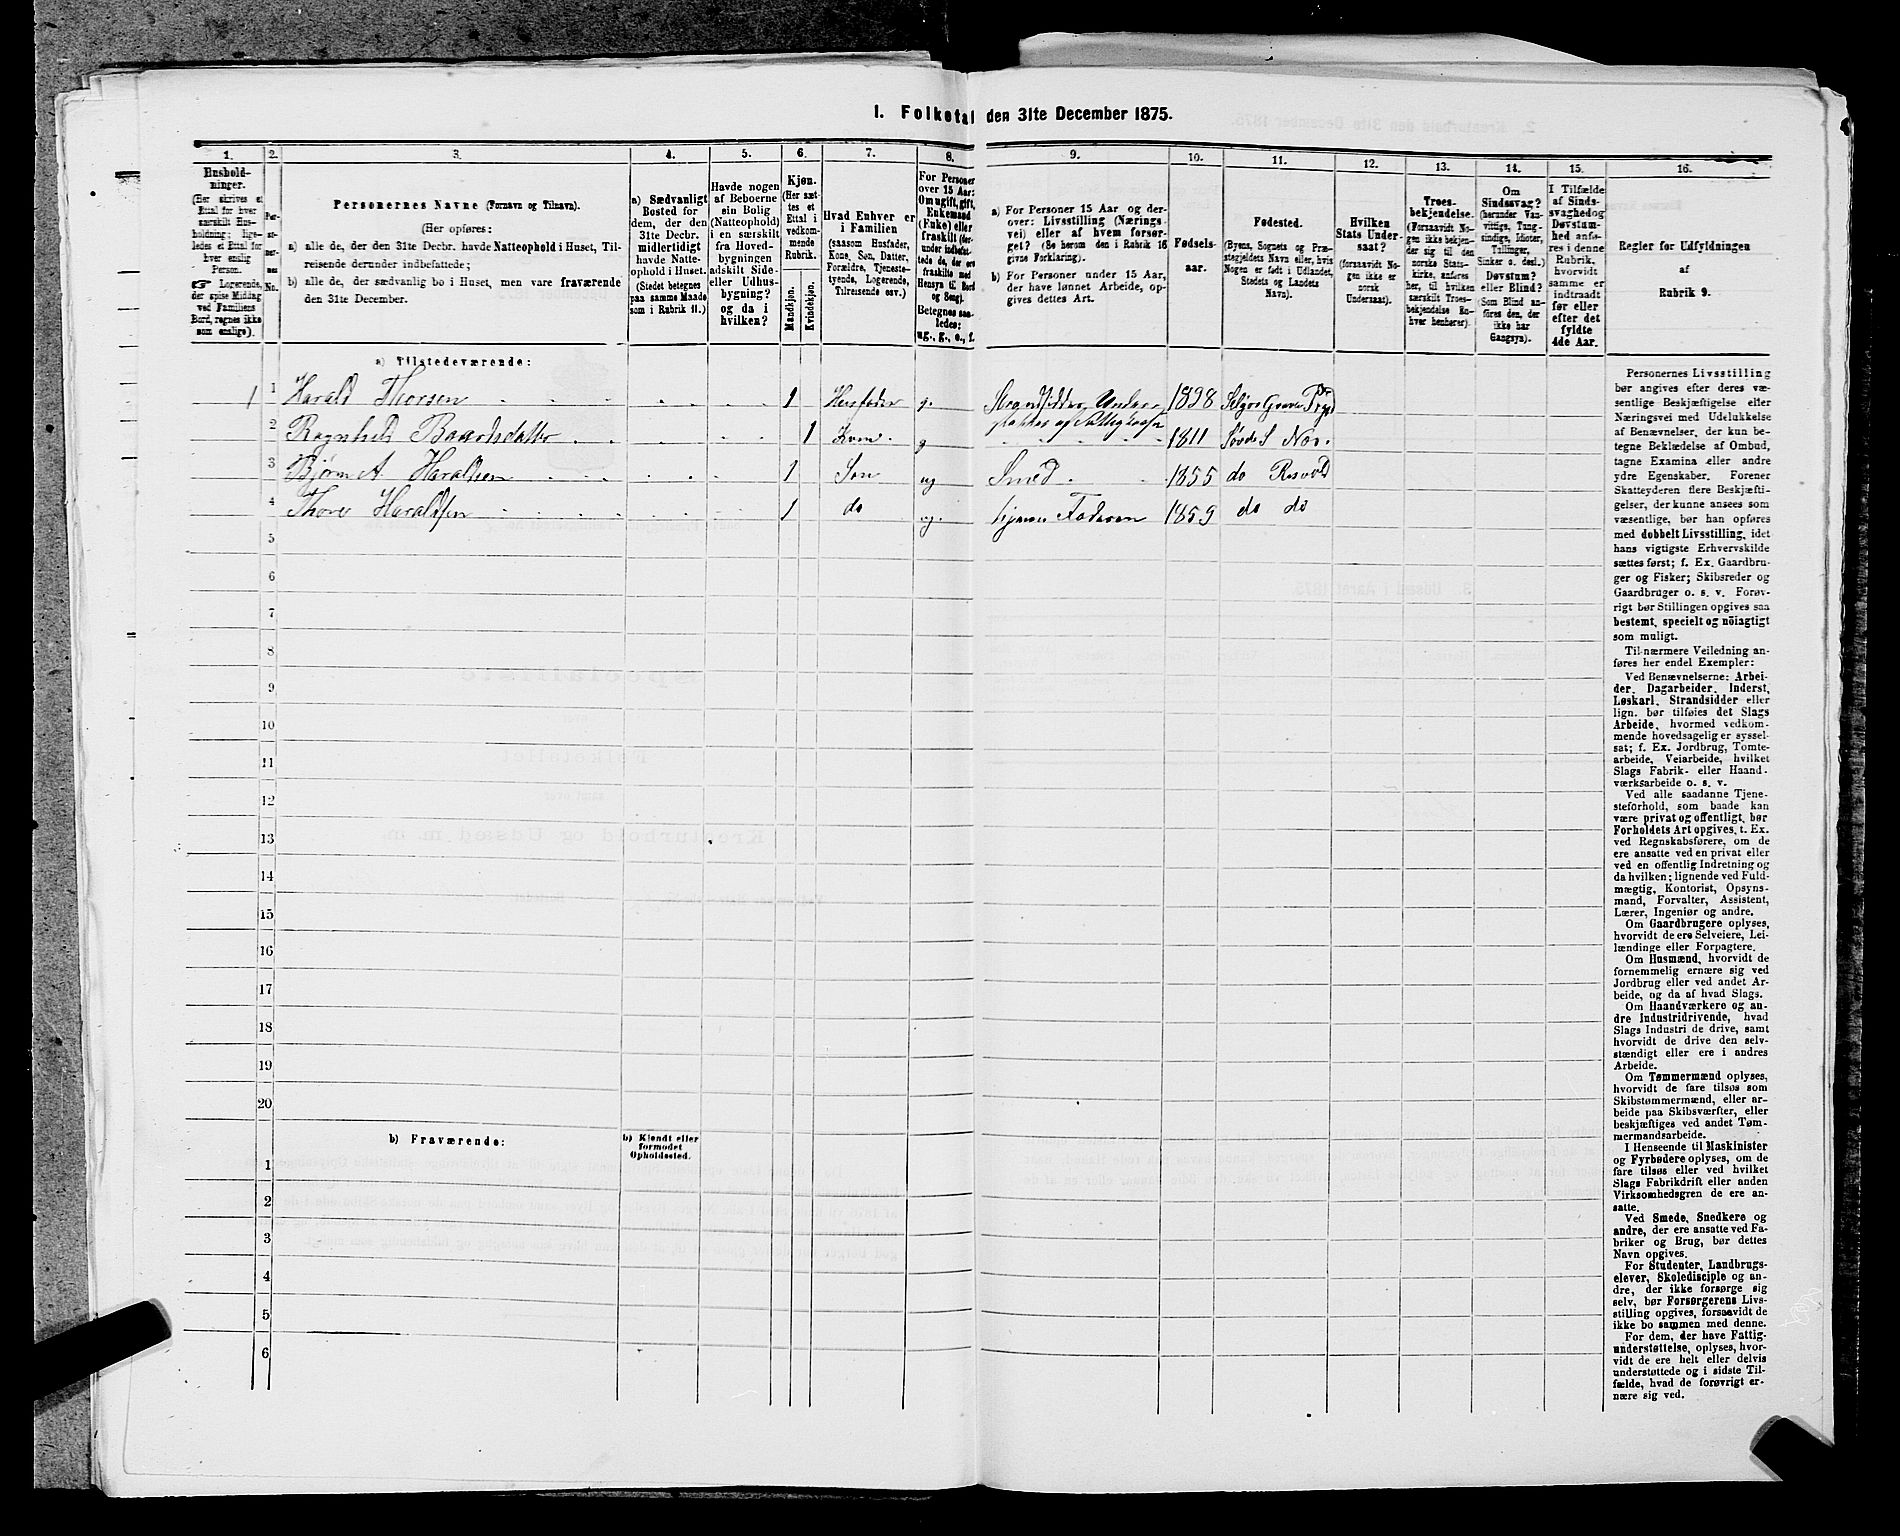 1. Folketal den 31te December 1875.
1. 2. 3. 4. 5. 6. 7. 8. 9. 10. 11. 12. 13. 14. 15. 16.
Hushold-
ninger.
(Her skrives et
Ettal for hver
særskilt Hus-
holdning; lige-
ledes et Ettal for
hver enslig
Person.
☞ Logerende,
der spise Middag
ved Familiens
Bord, regnes ikke
som enslige).
Personernes Navne (Fornavn og Tilnavn).
(Her opføres:
a) alle de, der den 31te Decbr. havde Natteophold i Huset, Til-
reisende derunder indbefattede;
b) alle de, der sædvanlig bo i Huset, men vare fraværende
den 31te December.
a) Sædvanligt
Bosted for
dem, der den
31te Decbr.
midlertidigt
havde Natte-
ophold i Huset.
(Stedet betegnes
paa samme Maade
som i Rubrik 11.)
Havde nogen
af Beboerne
sin Bolig
(Natteophold)
i en særskilt
fra Hoved-
bygningen
adskilt Side-
eller Udhus-
bygning?
og da i
hvilken?
Kjøn.
(Her sæt-
tes et
Ettal i
vedkom-
mende
Rubrik.
Mandkjøn.
Kvindekjøn.
Hvad Enhver er
i Familien
(saasom Husfader,
Kone, Søn, Datter,
Forældre, Tjeneste-
tyende, Logerende,
Tilreisende osv.)
For Personer
over 15 Aar:
Om ugift, gift,
Enkemand
(Enke) eller
fraskilt (her-
under indbefat-
tede de, der ere
fraskilte med
Hensyn til Bord
og Seng).
Betegnes saa-
ledes:
ug., g., e., f.
a) For Personer 15 Aar og der-
over: Livsstilling (Nærings
vei) eller af hvem forsør-
get? (Se herom den i Rubrik 16
givne Forklaring).
b) For Personer under 15 Aar,
der have lønnet Arbeide, op-
gives dettes Art.
Fødsels-
aar.
Fødested.
(Byens, Sognets og Præ-
stegjeldets Navn eller, hvis
Nogen er født i Udlandet,
Stedets og Landets
Navn).
Hvilken
Stats Under-
saat?
(forsaavidt No-
gen ikke er
norsk
Undersaat).
Troes-
bekjendelse.
(Forsaavidt No-
gen ikke bekjen-
der sig til den
norske Stats-
kirke, anføres
her, til hvilken
særskilt Troes-
bekjendelse En-
hver henhører).
Om
Sindssvag?
(herunder Van-
vittige, Tung-
sindige, Idioter,
Tullinger,
Sinker o. desl.).
Døvstum?
eller Blind?
(Som Blind an-
føres den, der
ikke har
Gangsyn).
I Tilfælde
af Sinds-
svaghed og
Døvstum-
hed anfø-
res i denne
Rubrik,
hvorvidt
samme er
indtraadt
før eller
efter det
fyldte
4de Aar.
Regler for Udfyldningen
af
Rubrik 9.
a) Tilstedeværende:
1 1 Harald Thorsen 1 Husfader g. Strandsidder, Under- 1828
støttes af Fattigkassen
2 Ragnhild Baardsdatter 1 Kone g 1811
3 Bjørn A Haraldsen 1 Søn ug Smed 1855 do Rosvold
4 Thore Haraldsen 1 do ug. hjemme Faderen 1859 do do
5
6
7
8
9
10
11
12
13
14
15
16
17
18
19
20
b) Fraværende:
b) Kjendt eller
formodet
Opholdssted.
1
2
3
4
5
6
Personernes Livsstilling
bør angives efter deres væ-
sentlige Beskjæftigelse eller
Næringsvei med Udelukkelse
af Benævnelser, der kun be-
tegne Beklædelse af Ombud,
tagne Examina eller andre
ydre Egenskaber. Forener
Skatteyderen flere Beskjæfti-
gelser, der kunne ansees som
væsentlige, bør han opføres
med dobbelt Livsstilling, idet
hans vigtigste Erhvervskilde
sættes først; f. Ex. Gaardbru-
ger og Fisker; Skibsreder og
Gaardbruger o. s. v. Forøv-
rigt bør Stillingen opgives saa
bestemt, specielt og nöiagtigt
som muligt.
Til nærmere Veiledning an-
føres her endel Exempler:
Ved Benævnelserne: Arbei-
der, Dagarbeider, Inderst,
Løskarl, Strandsidder eller
lign. bør tilføies det Slags
Arbeide, hvormed vedkom-
mende hovedsagelig er syssel-
sat; f. Ex. Jordbrug, Tomte-
arbeide, Veiarbeide, hvilket
Slags Fabrik- eller Haand-
værksarbeide o. s. v.
Ved alle saadanne Tjene-
steforhold, som baade kan
være privat og offentligt, bør
Forholdets Art opgives, t. Ex.
ved Regnskabsførere, om de
ere ansatte ved en privat eller
ved en offentlig Indretning og
da hvilken; lignende ved Fuld-
mægtig, Kontorist, Opsyns-
mand, Forvalter, Assistent,
Lærer, Ingeniør og andre.
Om Gaardbrugere oplyses,
hvorvidt de ere Selveiere, Lei-
lændinge eller Forpagtere.
Om Husmænd, hvorvidt de
fornemmelig ernære sig ved
Jordbrug eller ved andet Ar-
beide, og da af hvad Slags.
Om Haandværkere og an-
dre Industridrivende, hvad
Slags Industri de drive, samt
hvorvidt de drive den selv-
stændigt eller ere i andres
Arbeide.
Om Tømmermænd oplyses,
hvorvidt de fare tilsøs som
Skibstømmermænd, eller ar-
beide paa Skibsværfter, eller
beskjæftiges ved andet Tøm-
mermandsarbeide.
I Henseende til Maskinister
og Fyrbødere oplyses, om de
fare tilsøs eller ved hvilket
Slags Fabrikdrift eller anden
Virksomhedsgren de ere an-
satte.
Ved Smede, Snedkere og
andre, der ere ansatte ved Fa-
briker og Brug, bør dettes
Navn opgives.
For Studenter, Landbrugs-
elever, Skoledisciple og an-
dre, der ikke forsørge sig
selv, bør Forsørgerens Livs-
stilling opgives, forsaavidt de
ikke bo sammen med denne.
For dem, der have Fattig-
understøttelse, oplyses, hvor-
vidt de ere helt eller delvis
understøttede og i sidste Til-
fælde, hvad de forøvrigt er-
nære sig ved.